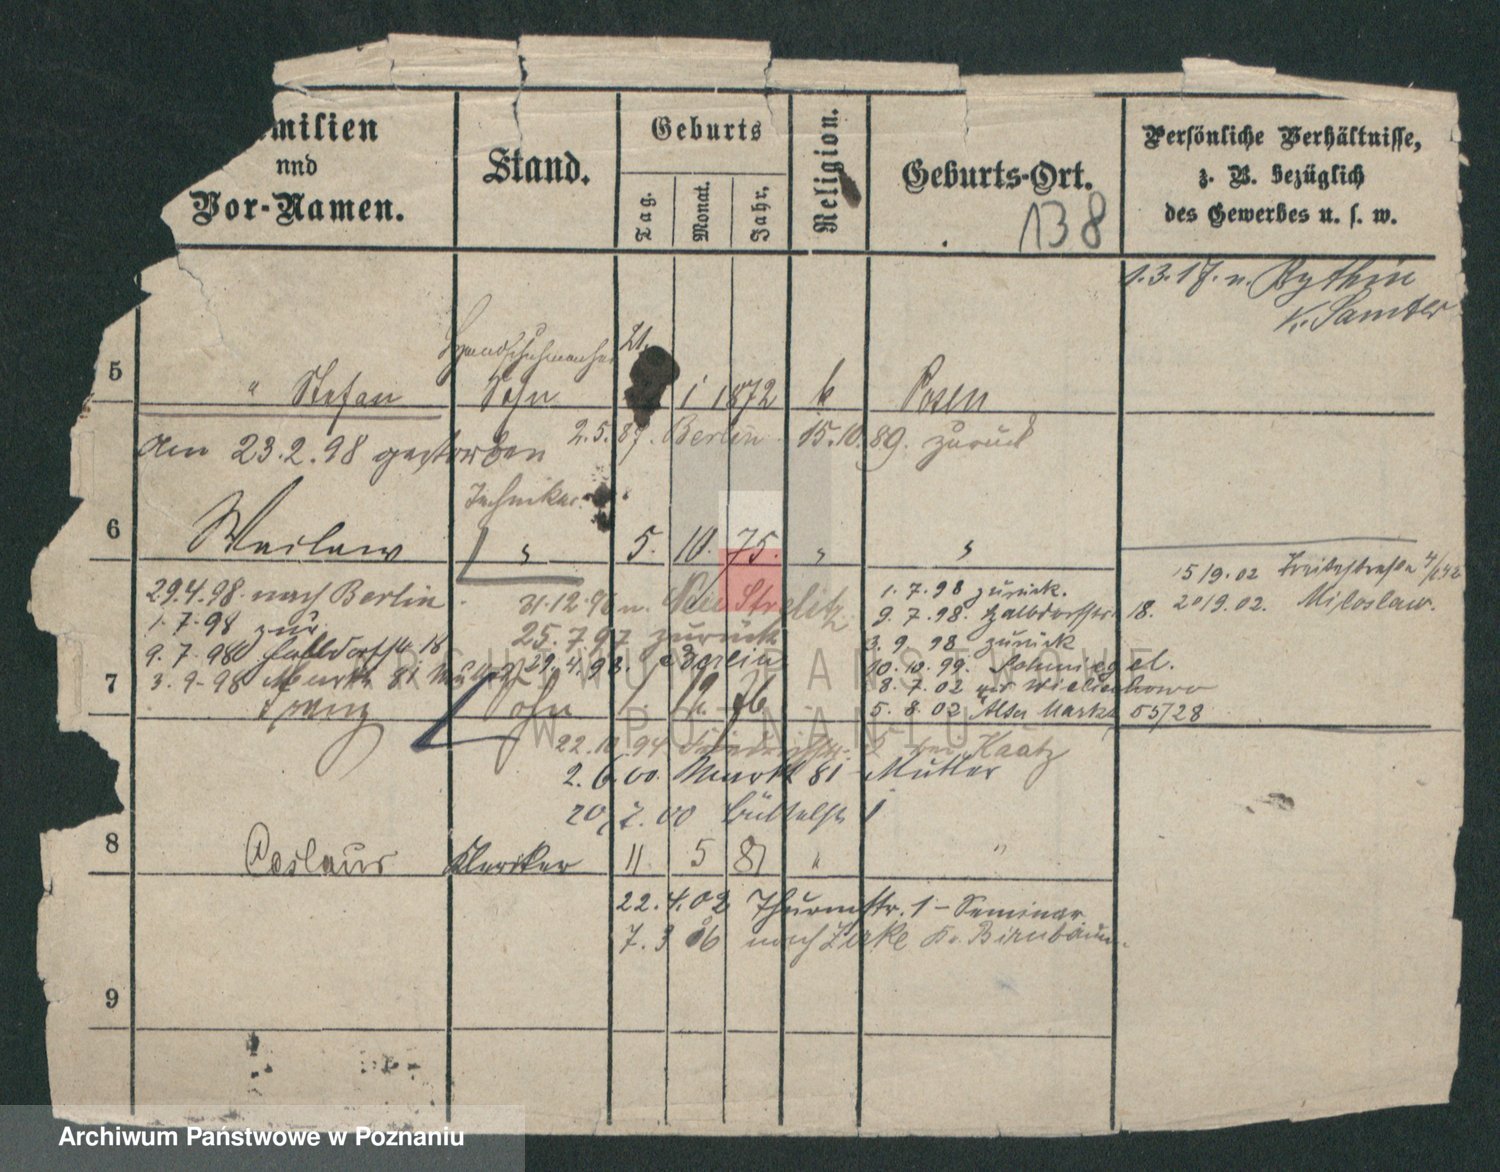 milien
und
Vor-Namen.
Stand.
Geburts
Tag.
Monat.
Jahr.
Religion.
Geburts-Ort.
138
Persönliche Verhältnisse,
z. B. bezüglich
des Gewerbes u. s. w.
1.3.17. n. Rythin
K. Samter
Handschuhmacher 21.
5 " Stefan Sohn 1 1872 k Posen
2.5.89. Berlin 15.10.89. zurück
Am 23.2.98 gestorben
Techniker
6 Waclaw " 5. 10. 75. " "
29.4.98. nach Berlin
1.7.98 zur.
9.7.98 Halbdorfstr 18
3.9.98 Markt 81
31.12.96 n. Neu Strelitz
25.7.97 zurück
29.4.98. Berlin
1.7.98 zurück.
9.7.98. Halbdorfstr. 18.
3.9.98 zurück
10.10.99.
8.7.02 Wielichowo
5.8.02 Alter Markt 55/28
15/9.02
20/9.02. Miloslaw.
7 Franz Sohn 1 12. 76
22.10.94 2 bei Kaatz
2.6.00. Markt 81 Mutter
20/7.00 Büttelstr 1
8 Ceslaus Kleriker 11 5 81 " "
22.4.02 Thurmstr. 1 - Seminar
7.3 06 nach Zirke Kr. Birnbaum.
9
ARCHIWUM PAŃSTWOWE
W POZNANIU
Archiwum Państwowe w Poznaniu